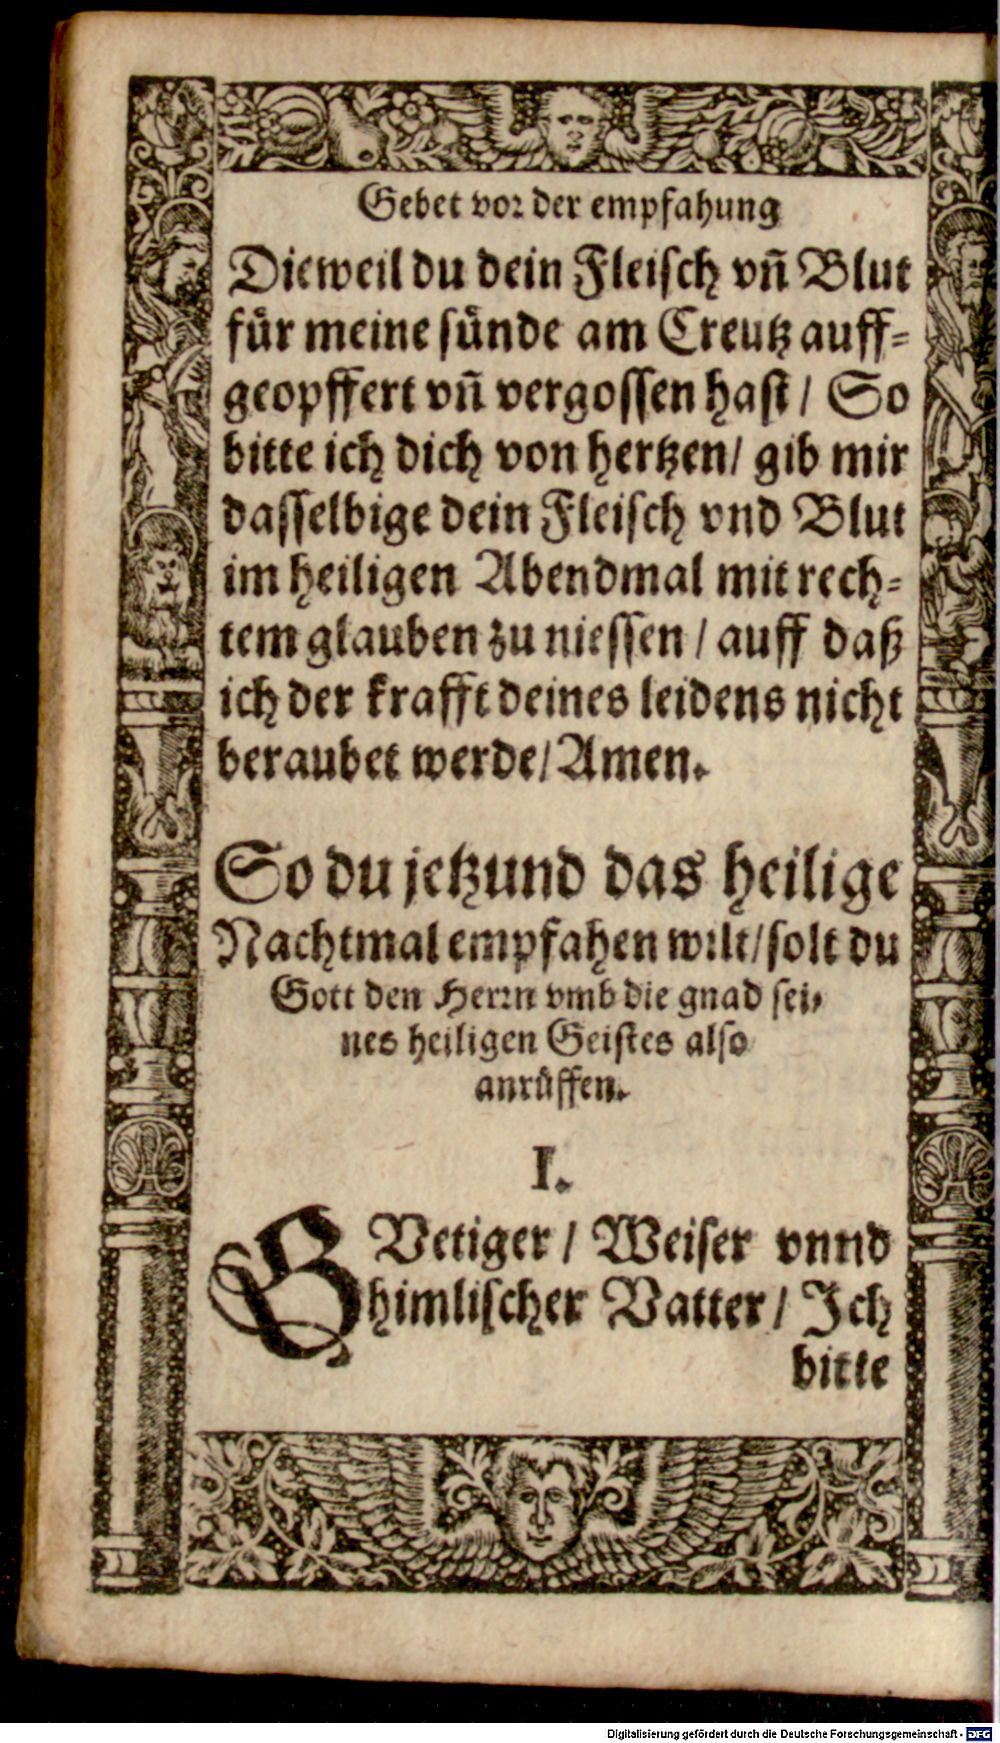 Gebet vor der empfahung
Dieweil du dein Fleisch vñ Blut
für meine sünde am Creutz auff-
geopffert vñ vergossen hast / So
bitte ich dich von hertzen / gib mir
dasselbige dein Fleisch vnd Blut
im heiligen Abendmal mit rech-
tem glauben zu niessen / auff daß
ich der krafft deines leidens nicht
beraubet werde / Amen.
So du jetzund das heilige
Nachtmal empfahen wilt / solt du
Gott den Herrn vmb die gnad sei-
nes heiligen Geistes also
anrüffen.
I.
GVetiger / Weiser vnnd
himlischer Vatter / Ich
bitte
Digitalisierung gefördert durch die Deutsche Forschungsgemeinschaft - DFG